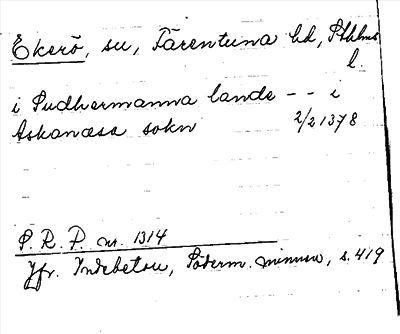 Ekerö, su, Färentuna hd, Sthlms
l.
i Sudhermanna lande -- i
Askanæsa sokn 2/2 1378
S. R. P. nr. 1314
Jfr. Indebetou, Söderm. minnen, s. 419